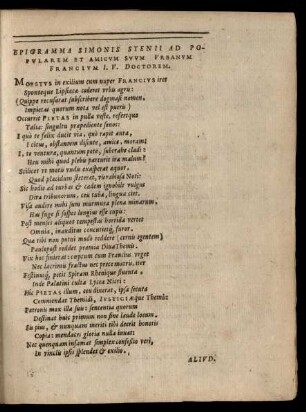 EPIGRAMMA SIMONIS STENII AD PO-
PVLAREM ET AMICVM SVVM VRBANVM
FRANCIVM I. V. DOCTOREM.
MOESTVS in exilium cum nuper FRANCIVS iret
Sponteque Lipsiacæ cederet urbis agris:
(Quippe recusarat subscribere dogmati nomen,
Impietas quorum nota vel est pueris)
Occurrit PIETAS in pulla veste, refertque
Talia: singultu præpediente sonos:
I quò te fatis ducit via, quò rapit ânta,
I citus, obstantem disiento, amice, moram!
I, te ventura, quantum pote, subtrahe cladi:
Heu mihi quod plebis parturit ira malum?
Scilicet ut motis rudis exasperat aquor,
Quod placidum steterat, vis rabiosa Noti:
Sic hodie ad turbas & cædem ignobile vulgus
Dira tribunorum, ceu tuba, lingua ciet.
Visa audire mihi sum murmura plena minarum,
Hac fuge si saltes longius esse cupis:
Post mensis aliquot tempestas horrida vertet
Omnia, inauditum concutietq, forum.
Qua tibi non potui modò reddere (cernis egentem)
Paulò post reddet præmia Diva Themis.
Vix hæc finierat: coeptum cum Francius urget
Nec lacrimis fractus nec prece mutat, iter
Festinusq, petit Spiram Rhenique fluenta,
Inde Palatini culta Lycæa Nicri:
Hic PIETAS illum, ceu dixerat, ipsa secuta
Commendat Themidi, IVSTICIÆque Themis:
Patronis mox illa suis: sententia quorum
Destinat huic primum non sine laude locum.
En pius, & nunquam meriti tibi deerit honoris
Copia: mandaces gloria nulla iuuat:
Nec quenquam infamat simplex confessio veri,
In vinclis ipsis splendet & exilio,
ALIVD.